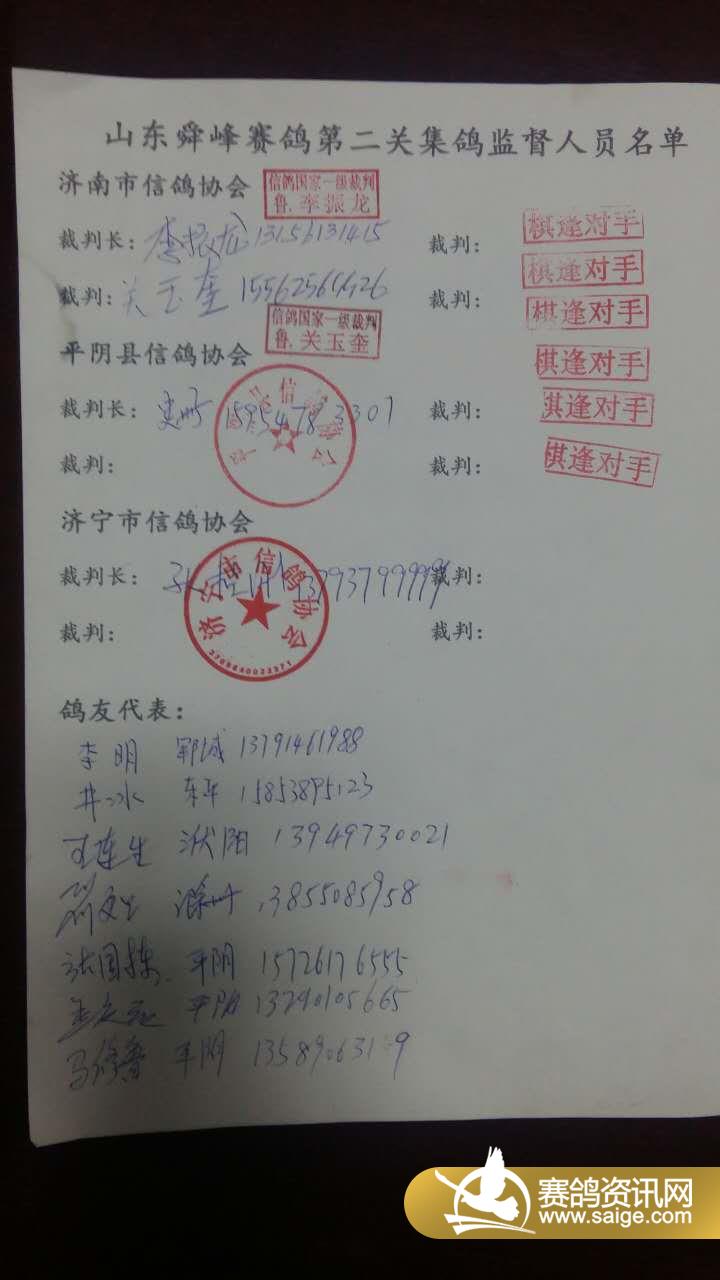 山东舜峰赛鸽第二关集鸽监督人员名单
济南市信鸽协会
信鸽国家一级裁判
鲁.李振龙
裁判长: 李振龙 13156131415 裁判:
棋逢对手
棋逢对手
裁判: 关玉奎 裁判:
棋逢对手
信鸽国家一级裁判
鲁.关玉奎
平阴县信鸽协会
棋逢对手
裁判长: 裁判:
棋逢对手
裁判: 裁判:
棋逢对手
济宁市信鸽协会
裁判长: 裁判:
济宁市信鸽协会
裁判: 裁判:
鸽友代表:
李明 郓城 13791461988
井水 东平 15853895123
濮阳 13949730021
滁州 13855085958
张国栋 平阴 15726176555
平阴 13290105665
平阴
赛鸽资讯网
www.saige.com